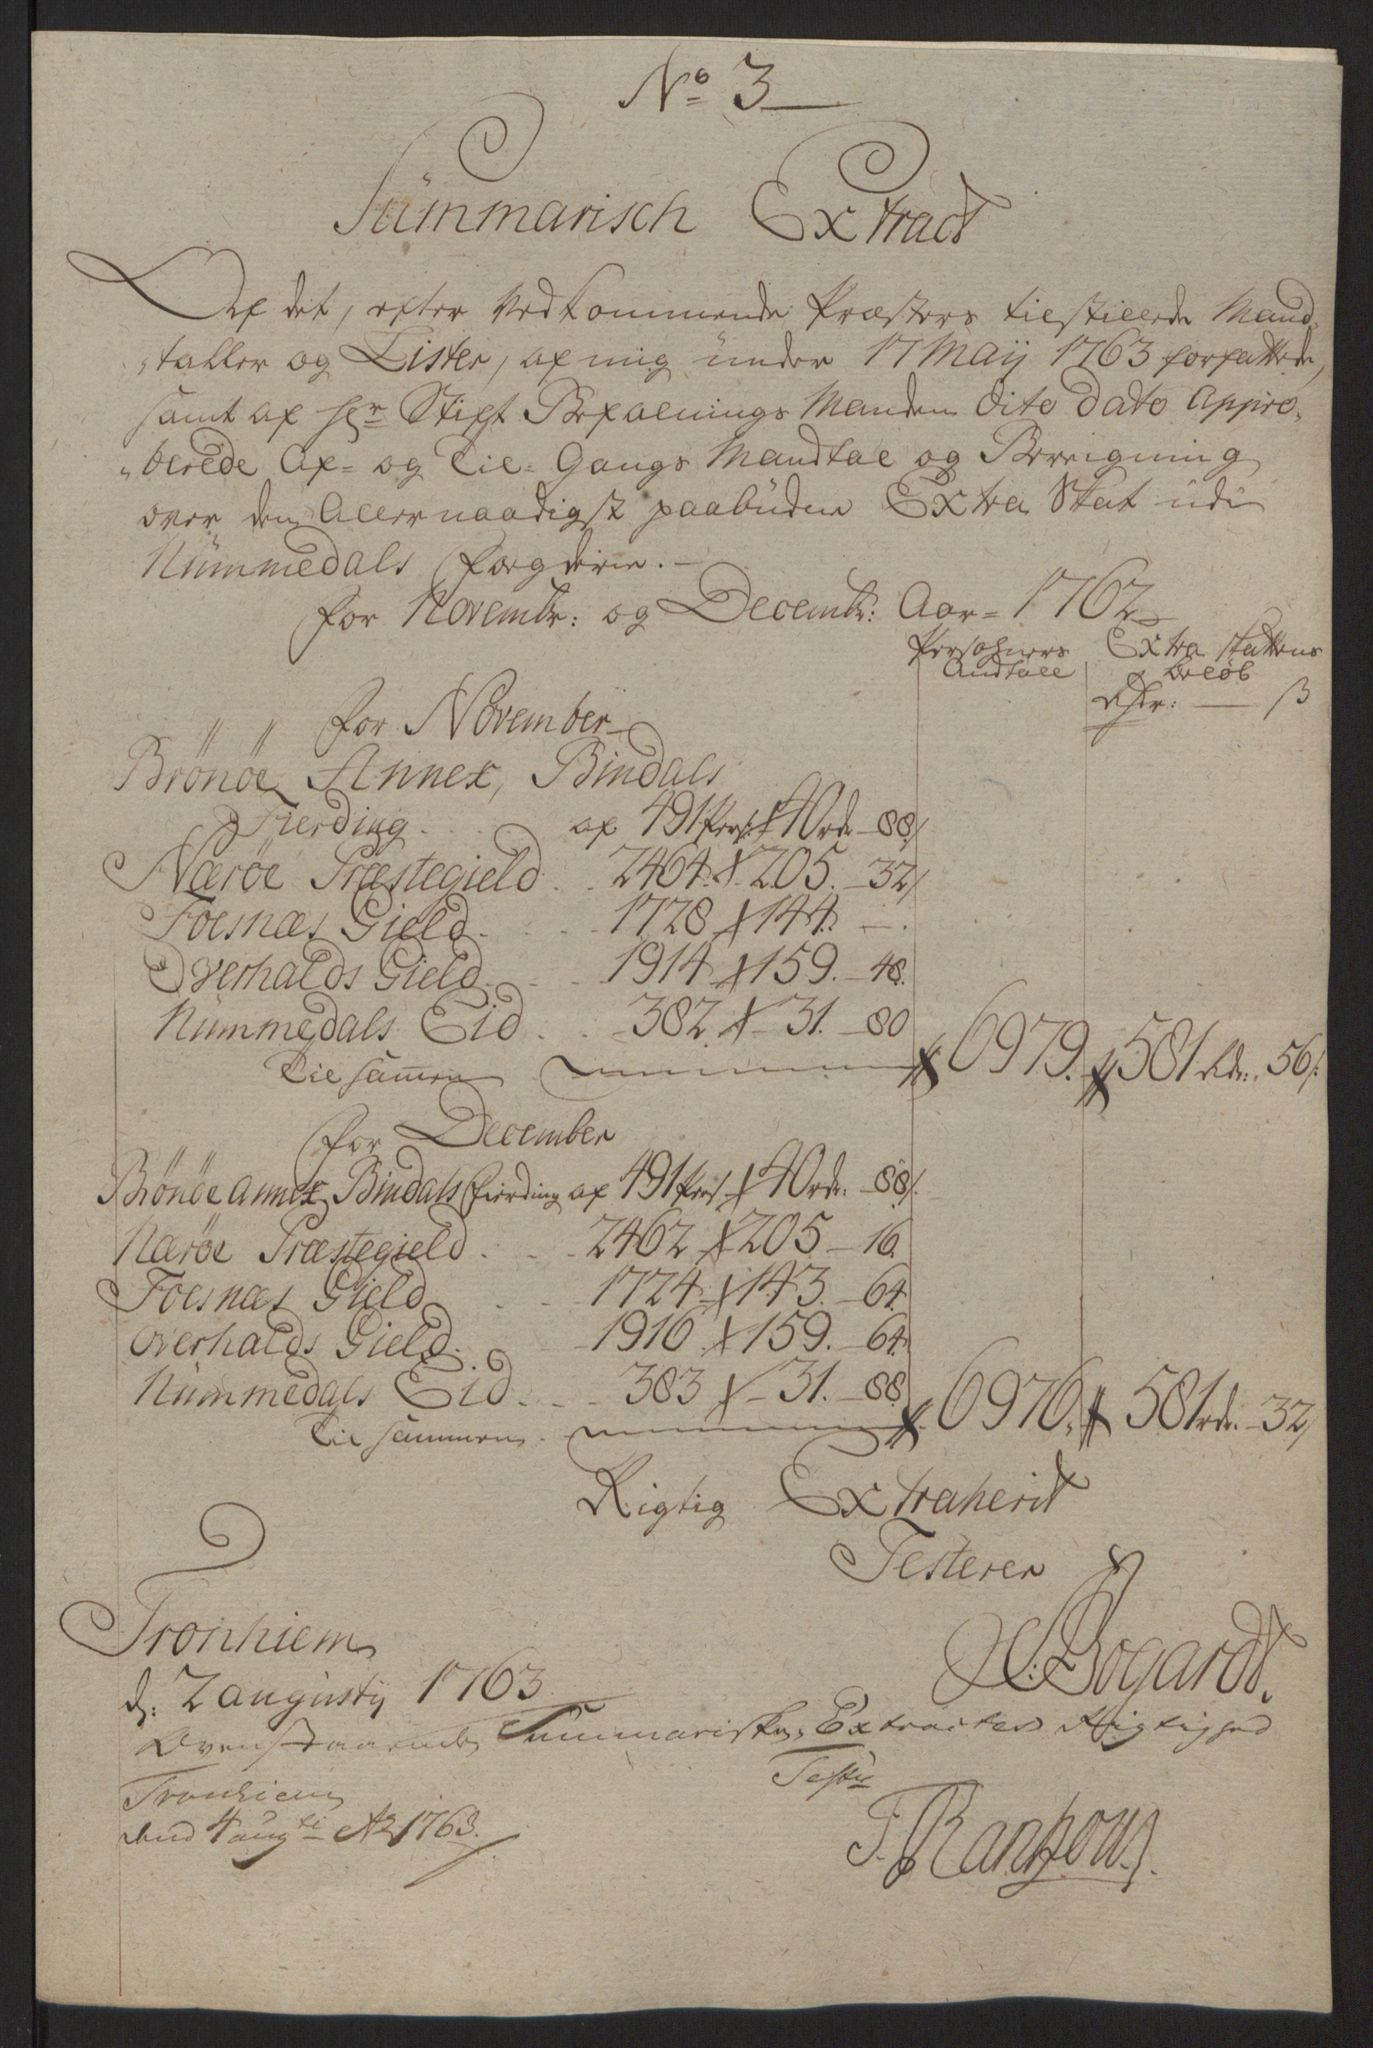 No 3
Summarisch Extract
Af det, efter Vedkommende Præsters tilstillede Mand-
„taller og Lister, af mig under 17 Maij 1763 forfattede,
samt af Hr Stift Befalnings Manden dito dato Appro-
„berede Af- og Til-Gangs Mandtal og Beregning
over den Allernaadigst paabudne Extra Skat udi
Nummedals fogderie.
for Novembr: og Decembr: Aar 1762
Persohners Extra skattens
Andtall beløb
Rdr: — ß
" " for November
Brönöe Annex, Bindals
Fierding . . af 491 Pers: # 40 rdr 88 ß
Nærøe Præstegield . . 2464 # 205. 32 ß
Foesnæs Gield . . 1728 # 144. —
Overhalds Gield . . 1914 # 159. 48.
Nummedals Eid . . 382 # 31. 80
Tilsamen # 6979. # 581 Rdr. 56 ß.
for December
Brönöe annex Bindals fierding af 491 Pers # 40 rdr. 88 ß.
Nærøe Præstegield . . 2462 # 205 16.
Foesnæs Gield . . 1724 # 143. 64.
Overhalds Gield . . 1916 # 159. 64.
Nummedals Eid . . 383 # 31. 88
Tilsammen . # 6976. # 581 rdr. 32 ß
Rigtig Extraherit
Testerer
Tronhiem
d: 2 augustij 1763
H: Bogardt.
Ovenstaaende Summariske Extractes Rigtighed
Tester
Tronhiem
dend 4 augti Ao 1763.
F. Rantzow.